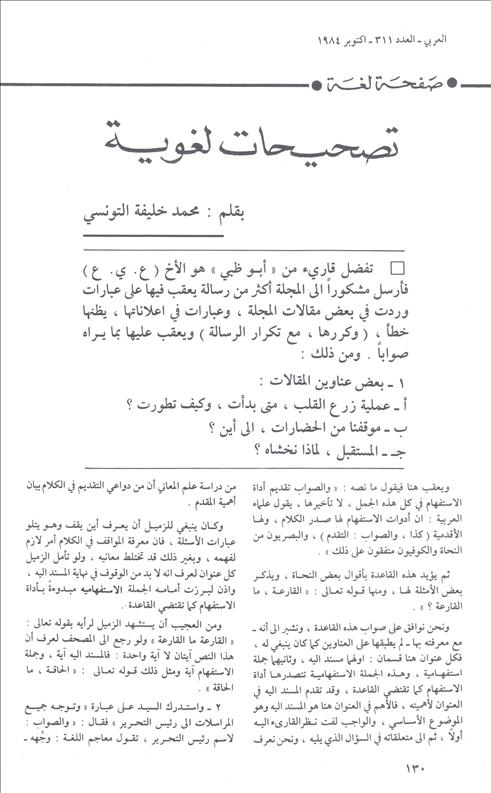 العربي - العدد ٣١١ - اكتوبر ١٩٨٤
صفحة لغة
تصحيحات لغوية
بقلم : محمد خليفة التونسي
تفضل قاريء من « أبو ظبي » هو الأخ ( ع . ي . ع )
فأرسل مشكوراً الى المجلة أكثر من رسالة يعقب فيها على عبارات
وردت في بعض مقالات المجلة ، وعبارات في اعلاناتها ، يظنها
خطأ ، ( وكررها ، مع تكرار الرسالة ) ويعقب عليها بما يراه
صواباً . ومن ذلك :
١ - بعض عناوين المقالات :
أ - عملية زرع القلب ، متى بدأت ، وكيف تطورت ؟
ب - موقفنا من الحضارات ، الى أين ؟
جـ - المستقبل ، لماذا نخشاه ؟
ويعقب هنا فيقول ما نصه : « والصواب تقديم أداة
الاستفهام في كل هذه الجمل ، لا تأخيرها ، يقول علماء
العربية : ان أدوات الاستفهام لها صدر الكلام ، ولها
الأقدمية ( كذا ، والصواب : التقدم ) ، والبصريون من
النحاة والكوفيون متفقون على ذلك » .
ثم يؤيد هذه القاعدة بأقوال بعض النحاة ، ويذكر
بعض الأمثلة لها ، ومنها قوله تعالى : « القارعة ، ما
القارعة ؟ » .
ونحن نوافق على صواب هذه القاعدة ، ونشير الى أنه -
مع معرفته بها - لم يطبقها على العناوين كما كان ينبغي له ،
فكل عنوان هنا قسمان : اولهما مسند اليه ، وثانيهما جملة
استفهامية ، وهذه الجملة الاستفهامية تتصدرها أداة
الاستفهام كما تقتضي القاعدة ، وقد تقدم المسند اليه في
العنوان لأهميته ، فالأهم في العنوان هنا هو المسند اليه وهو
الموضوع الأساسي ، والواجب لفت نظر القارىء اليه
أولاً ، ثم الى متعلقاته في السؤال الذي يليه ، ونحن نعرف
من دراسة علم المعاني أن من دواعي التقديم في الكلام بيان
أهمية المقدم .
وكان ينبغي للزميل أن يعرف أين يقف وهو يتلو
عبارات الأسئلة ، فان معرفة المواقف في الكلام أمر لازم
لفهمه ، وبغير ذلك قد تختلط معانيه ، ولو تأمل الزميل
كل عنوان لعرف انه لا بد من الوقوف في نهاية المسند اليه ،
واذن لبرزت أمامه الجملة الاستفهامية مبدوءة بأداة
الاستفهام كما تقتضي القاعدة .
ومن العجيب أن يستشهد الزميل لرأيه بقوله تعالى :
« القارعة ما القارعة » ولو رجع الى المصحف لعرف أن
هذا النص آيتان لا آية واحدة : فالمسند اليه آية ، وجملة
الاستفهام آية ومثل ذلك قوله تعالى : « الحاقة ، ما
الحاقة » .
٢ - واستدرك السيد على عبارة « وتوجه جميع
المراسلات الى رئيس التحرير » فقال : « والصواب :
لاسم رئيس التحرير ، تقول معاجم اللغة : وجُهه -
١٣٠